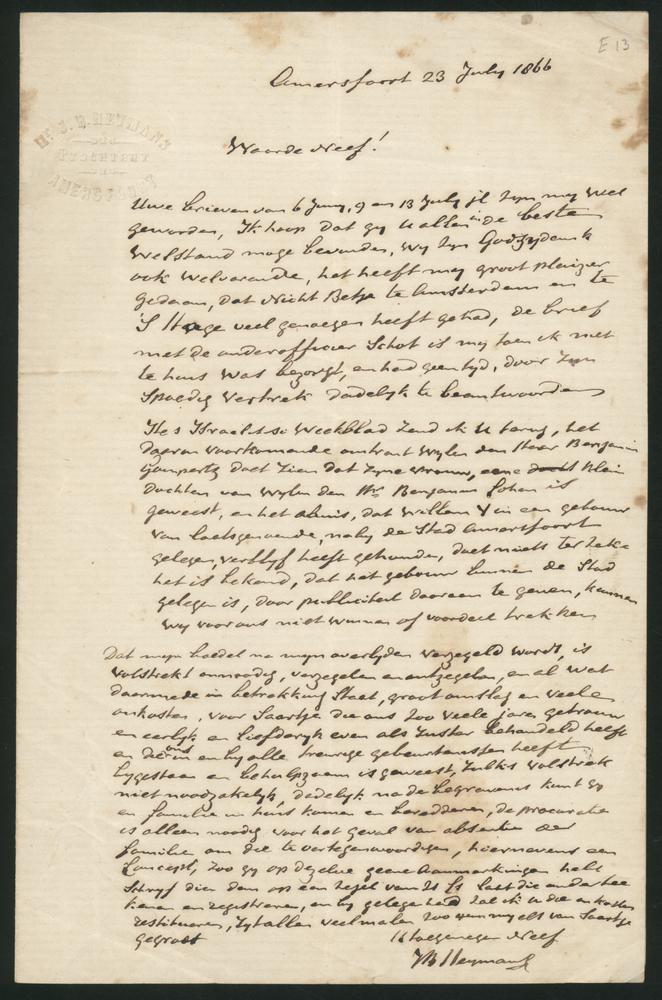 E 13
Amersfoort 23 July 1866
Mr S. B. HEYMANS
AMERSFOORT
Waarde Neef!
Uwe brieven van 6 Juny, 9 en 13 July jl zyn my wel
geworden, Ik hoop dat gy U allen in de beste
welstand moge bevinden, wy zyn Godzydank
ook welvarende, het heeft my groot plaizer
gedaan, dat Nicht Betje te Amsterdam en te
'S Hage veel genoegen heeft gehad, de brief
met de onderofficier Schot is my toen ik niet
te huis was bezorgt, en had geen tyd, door zyn
spoedig vertrek dadelyk te beantwoorden
Weekblad zend ik U terug, het
daarin voorkomende omtrent wylen den Heer Benjamin
Gompertz doet zien dat zyne vrouw, eene klein
dochter van wylen den Hr Benjamin Cohen is
geweest, en het abuis, dat Willem V in een gebouw
van laatsgenoemde, naby de Stad Amersfoort
gelegen, verblyf heeft gehouden, doet niets ter zake
het is bekend, dat het gebouw binnen de Stad
gelegen is, door publiciteit daaraan te geven, kunnen
wy voor ons niet winnen of voordeel trekken
Dat myn boedel na myn overlyden verzegeld wordt, is
volstrekt onnoodig, verzegelen en ontzegelen, en al wat
daarmede in betrekking staat, groot omslag en veele
onkosten, voor Saartje die ons zoo veele jaren getrouw
en eerlyk en liefderyk even als Zuster behandeld heeft
en die ons in en by alle treurige gebeurtenissen heeft
bygestaan en behulpzaam is geweest, zulks volstrekt
niet noodzakelyk, dadelyk na de begravenis kunt gy
en familie in huis komen en beredderen, de procuratie
is alleen noodig voor het geval van absentie der
familie om die te vertegenwoordigen, hiernevens een
Concept, zoo gy op dezelve geene aanmerkingen hebt
schryf dien dan op een zegel van laat die onderteekenen
en registreren, en by gelegenheid zal ik U die onkosten
restitueren, zyt allen veelmalen zoo van my als van Saartje
gegroet U toegenegen Neef
Heymans